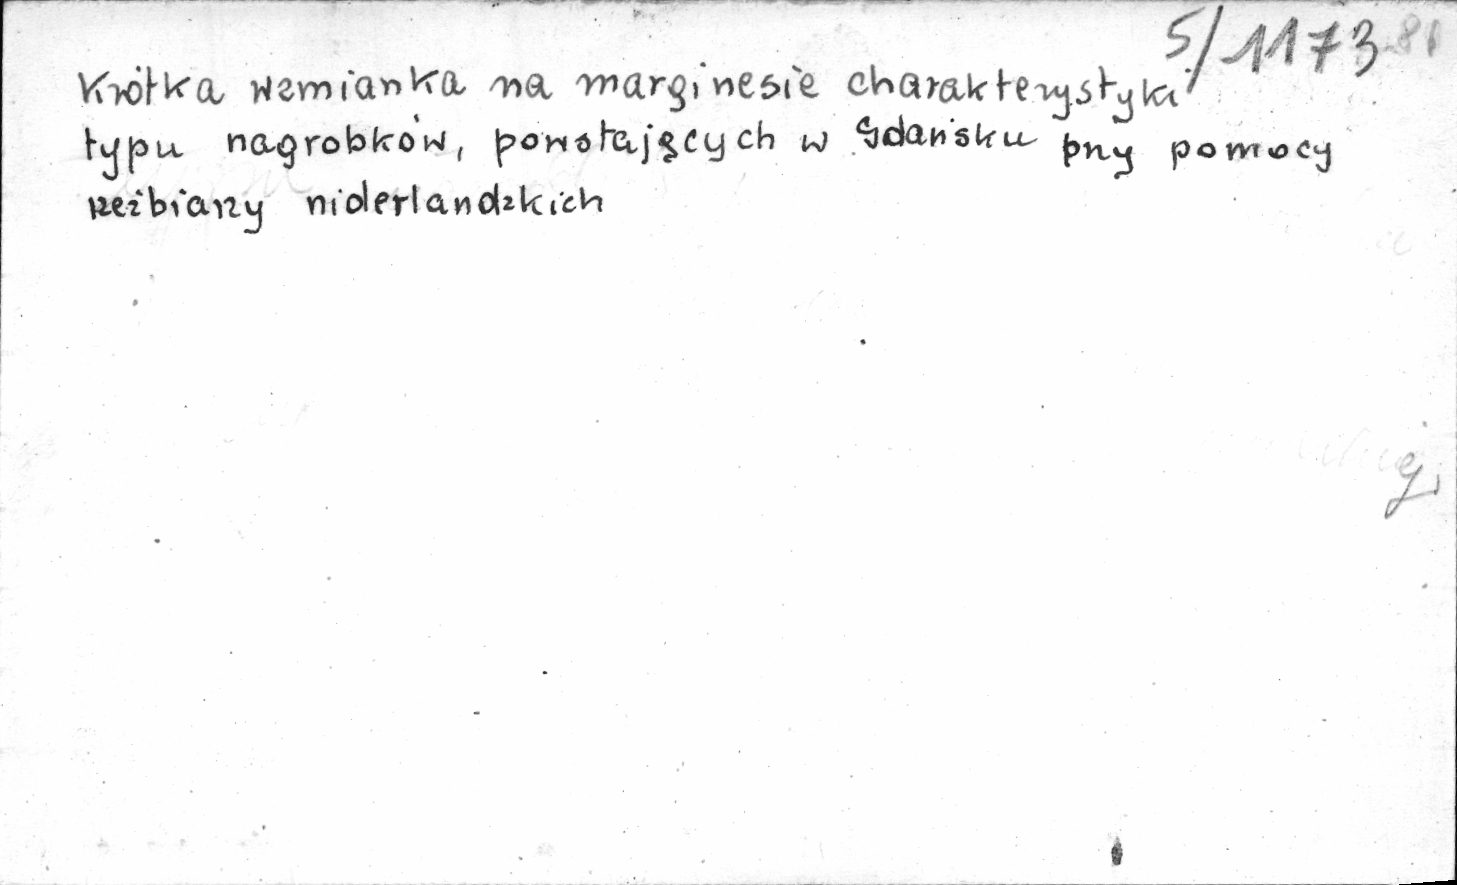 5/1173
Krótka wzmianka na marginesie charakterystyki
typu nagrobków, powstających w Gdańsku przy pomocy
rzeźbiarzy niderlandzkich